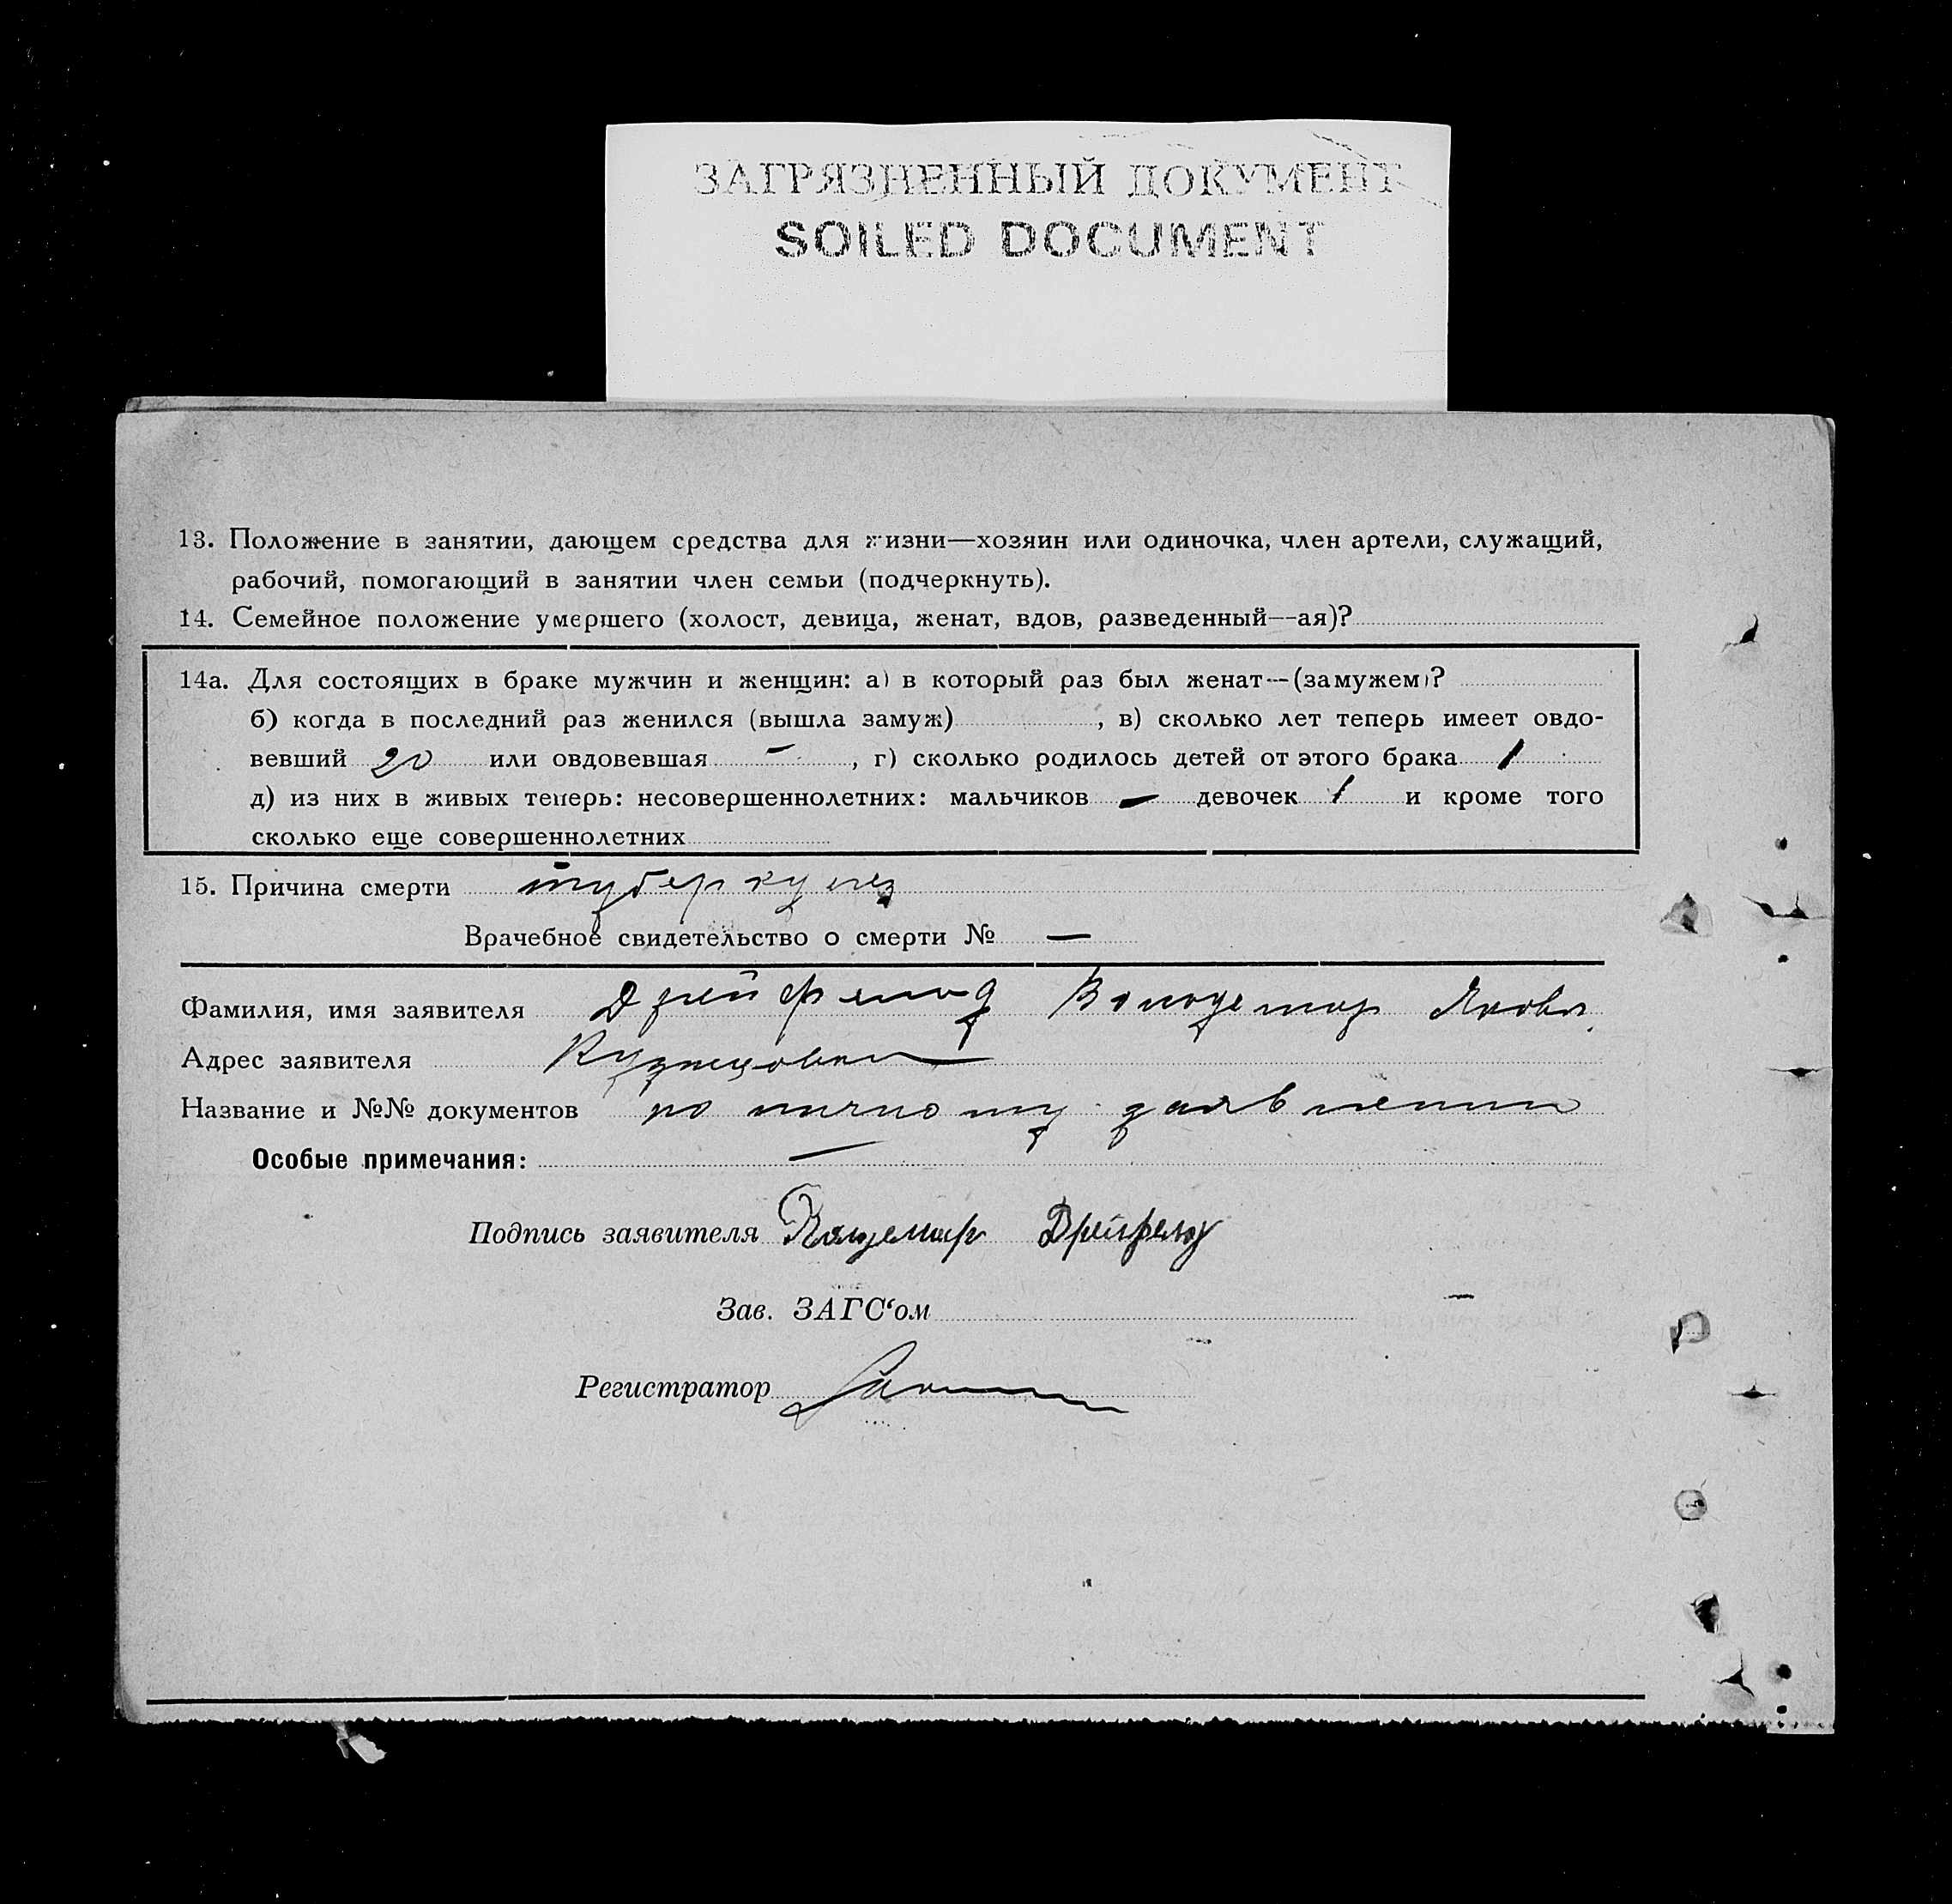 ЗАГРЯЗНЕННЫЙ ДОКУМЕНТ
SOILED DOCUMENT
13. Положение в занятии, дающем средства для жизни—хозяин или одиночка, член артели, служащий,
рабочий, помогающий в занятии член семьи (подчеркнуть).
14. Семейное положение умершего (холост, девица, женат, вдов, разведенный—ая)?
14а. Для состоящих в браке мужчин и женщин: а) в который раз был женат—(замужем)?
б) когда в последний раз женился (вышла замуж) , в) сколько лет теперь имеет овдо-
вевший 20 или овдовевшая — , г) сколько родилось детей от этого брака 1
д) из них в живых теперь: несовершеннолетних: мальчиков — девочек 1 и кроме того
сколько еще совершеннолетних
15. Причина смерти туберкулез
Врачебное свидетельство о смерти № —
Фамилия, имя заявителя Дрейфельд Вольдемар Яковл.
Адрес заявителя
Название и №№ документов по личному заявлению
Особые примечания: —
Подпись заявителя Вальдемар Дрейфельд
Зав. ЗАГС‘ом
Регистратор